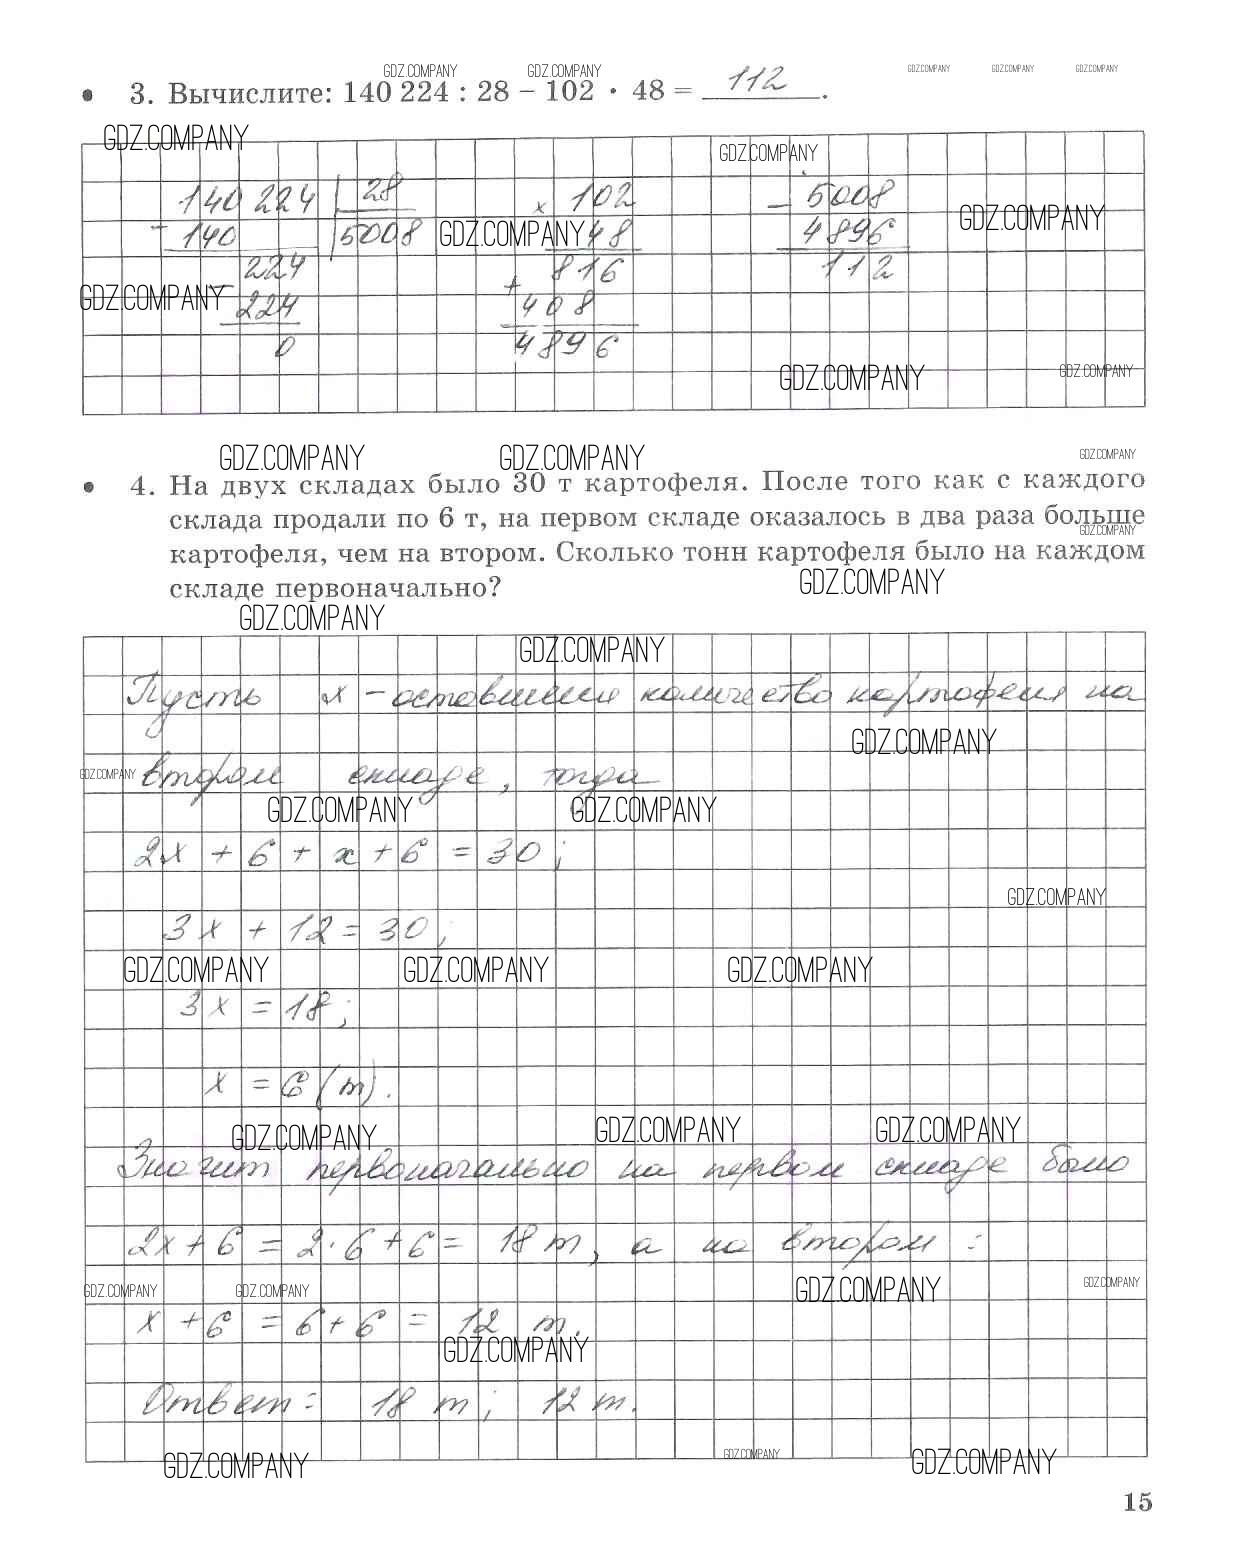 GDZ.COMPANY GDZ.COMPANY GDZ.COMPANY GDZ.COMPANY GDZ.COMPANY
• 3. Вычислите: 140 224 : 28 – 102 · 48 = 112.
GDZ.COMPANY GDZ.COMPANY
– 140 224 | 28 × 102 – 5008
140 5008 GDZ.COMPANY 48 4896 GDZ.COMPANY
224 816 112
GDZ.COMPANY – 224 + 408
0 4896
GDZ.COMPANY GDZ.COMPANY
GDZ.COMPANY GDZ.COMPANY GDZ.COMPANY
• 4. На двух складах было 30 т картофеля. После того как с каждого
склада продали по 6 т, на первом складе оказалось в два раза больше
GDZ.COMPANY
картофеля, чем на втором. Сколько тонн картофеля было на каждом
складе первоначально? GDZ.COMPANY
GDZ.COMPANY
GDZ.COMPANY
Пусть x – оставшееся количество картофеля на
GDZ.COMPANY
GDZ.COMPANY втором складе, тогда
GDZ.COMPANY GDZ.COMPANY
2x + 6 + x + 6 = 30;
GDZ.COMPANY
3x + 12 = 30;
GDZ.COMPANY GDZ.COMPANY GDZ.COMPANY
3x = 18;
x = 6 (т).
GDZ.COMPANY GDZ.COMPANY GDZ.COMPANY
Значит первоначально на первом складе было
2x + 6 = 2·6 + 6 = 18 т, а на втором:
GDZ.COMPANY GDZ.COMPANY GDZ.COMPANY GDZ.COMPANY
x + 6 = 6 + 6 = 12 т.
GDZ.COMPANY
Ответ: 18 т; 12 т.
GDZ.COMPANY GDZ.COMPANY GDZ.COMPANY
15